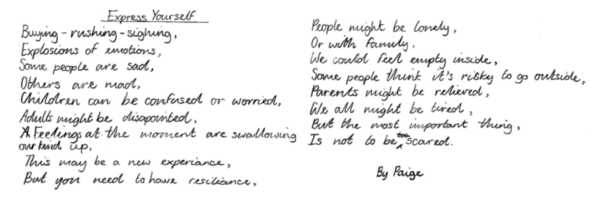 Express Yourself
Buying - rushing - sighing,
Explosions of emotions,
Some people are sad,
Others are mad,
Children can be confused or worried,
Adults might be disapointed,
Feelings at the moment are swallowing
our kind up,
This may be a new experiance,
But you need to have resiliance,
People might be lonely,
Or with family.
We could feel empty inside,
Some people think it's risky to go outside,
Parents might be relieved,
We all might be tired,
But the most important thing,
Is not to be too scared.
By Paige